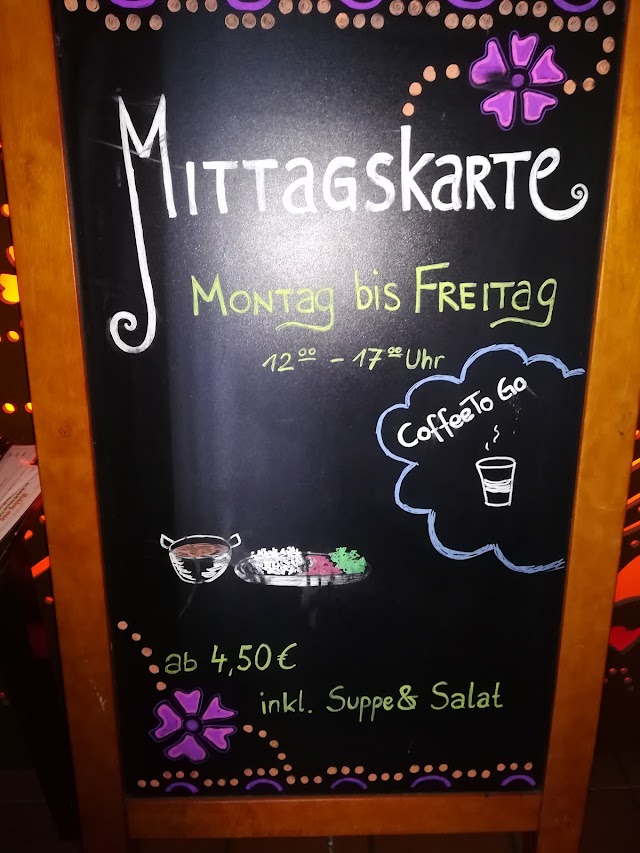 Mittagskarte
Montag bis Freitag
12⁰⁰ - 17⁰⁰ Uhr
Coffee To Go
ab 4,50 €
inkl. Suppe & Salat